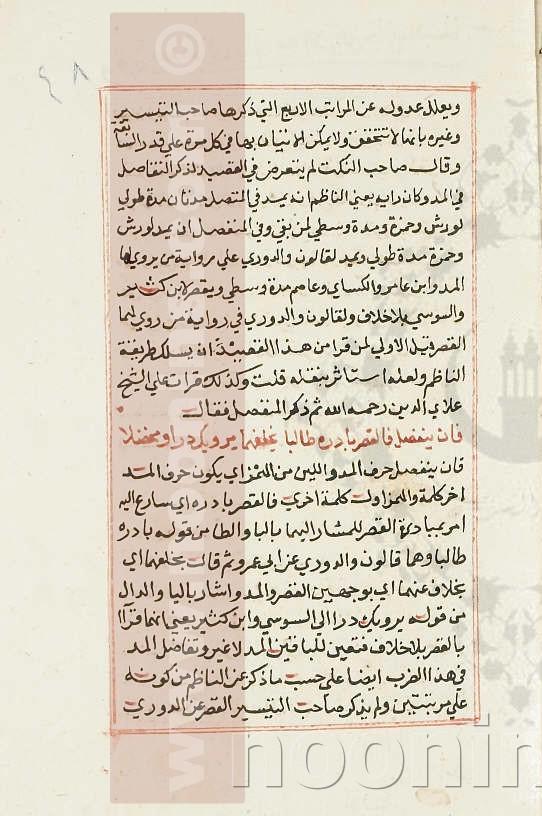 ٤٨
ويعلل عدوله عن المراتب الاربع التي ذكرها صاحب التيسير
وغيره بانها لا تتحقق ولا يمكن الاتيان بها في كل مرة علي قدر السابقة
وقال صاحب النكت لم يتعرض في القصيد لذكر التفاضل
في المد وكان رايه يعني الناظم انه يمد في المتصل مدتان مدة طولي
لورش وحمزة ومدة وسطي لمن بقي وفي المنفصل ان يمد لورش
وحمزة مدة طولي ويمد لقالون والدوري علي رواية من يروي لهما
المد وابن عامر والكساي وعاصم مدة وسطي ويقصر لابن كثير
والسوسي بلاخلاف ولقالون والدوري في رواية من روي لهما
القصر قيل الاولي لمن قرا من هذا القصيد ان يسلك طريقة
الناظم ولعله استاثر بنقله قلت وكذلك قرات علي الشيخ
علاي الدين رحمه الله ثم ذكر المنفصل فقال
فان ينفصل فالقصر بادره طالبا بخلفهما يرويك درا ومخضلا
فان ينفصل حرف المد واللين من الهمز اي يكون حرف المد
اخر كلمة والهمز اول كلمة اخري فالقصر بادره اي سارع اليه
امر بمبادرة القصر للمشار اليهما بالبا والطا من قوله بادره
طالبا وهما قالون والدوري عن ابي عمرو ثم قال بخلفهما اي
بخلاف عنهما اي بوجهين القصر والمد واشار باليا والدال
من قوله يرويك درا الي السوسي وابن كثير يعني انهما قراا
بالقصر بلاخلاف فتعين للباقين المد لاغير وتفاضل المد
في هذا الضرب ايضا علي حسب ما ذكر عن الناظم من كونه
علي مرتبتين ولم يذكر صاحب التيسير القصر عن الدوري
www.noonin
noonin